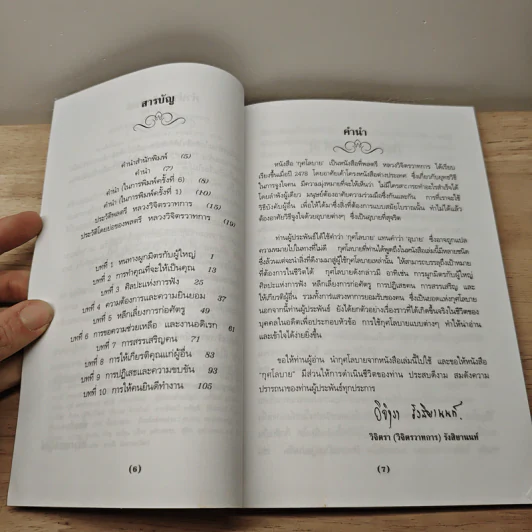 สารบัญ
คำนำสำนักพิมพ์ (5)
คำนำ (7)
คำนำ (ในการพิมพ์ครั้งที่ 6) (8)
คำนำ (ในการพิมพ์ครั้งที่ 1) (10)
ประวัติพลตรี หลวงวิจิตรวาทการ (15)
ประวัติโดยย่อของพลตรี หลวงวิจิตรวาทการ (19)
บทที่ 1 หนทางผูกมิตรกับผู้ใหญ่ 1
บทที่ 2 การทำคุณที่จะให้เป็นคุณ 13
บทที่ 3 ศิลปะแห่งการฟัง 25
บทที่ 4 ความต้องการและความยินยอม 37
บทที่ 5 หลีกเลี่ยงการก่อศัตรู 49
บทที่ 6 การขอความช่วยเหลือ และงานอดิเรก 61
บทที่ 7 การสรรเสริญคน 71
บทที่ 8 การให้เกียรติคุณแก่ผู้อื่น 83
บทที่ 9 การปฏิเสธและความขบขัน 93
บทที่ 10 การให้คนยินดีทำงาน 105
(6)
คำนำ
หนังสือ "กุศโลบาย" เป็นหนังสือที่พลตรี หลวงวิจิตรวาทการ ได้เรียบ
เรียงขึ้นเมื่อปี 2478 โดยอาศัยเค้าโครงหนังสือต่างประเทศ ซึ่งเกี่ยวกับยุทธวิธี
ในการจูงใจคน มีความมุ่งหมายที่จะให้เห็นว่า ไม่มีใครสามารถทำอะไรสำเร็จได้
โดยลำพังผู้เดียว มนุษย์ต้องอาศัยความร่วมมือซึ่งกันและกัน การที่เราจะใช้
วิธีบังคับผู้อื่น เพื่อให้ได้มาซึ่งสิ่งที่ต้องการแบบสมัยโบราณนั้น ทำไม่ได้แล้ว
ต้องอาศัยวิธีจูงใจด้วยอุบายต่างๆ ซึ่งเป็นอุบายที่สุจริต
ท่านผู้ประพันธ์ได้ใช้คำว่า "กุศโลบาย" แทนคำว่า "อุบาย" ซึ่งอาจถูกแปล
ความหมายไปในทางที่ไม่ดี กุศโลบายที่ท่านได้พูดถึงในหนังสือเล่มนี้มีหลายชนิด
ซึ่งล้วนแต่จะนำสิ่งที่ดีงามมาสู่ผู้ใช้กุศโลบายเหล่านั้น ให้สามารถบรรลุถึงเป้าหมาย
ที่ต้องการในชีวิตได้ กุศโลบายดังกล่าวมี อาทิเช่น การผูกมิตรกับผู้ใหญ่
ศิลปะแห่งการฟัง การหลีกเลี่ยงการก่อศัตรู การปฏิเสธคน การสรรเสริญ และ
ให้เกียรติผู้อื่น รวมทั้งการแสวงหาการยอมรับของคน ซึ่งเป็นยอดแห่งกุศโลบาย
นอกจากนี้ท่านผู้ประพันธ์ ยังได้ยกตัวอย่างเรื่องราวที่ได้เกิดขึ้นจริงในชีวิตของ
บุคคลในอดีตเพื่อประกอบหัวข้อ การใช้กุศโลบายแบบต่างๆ ทำให้น่าอ่าน
และเข้าใจได้ง่ายยิ่งขึ้น
ขอให้ท่านผู้อ่าน นำกุศโลบายจากหนังสือเล่มนี้ไปใช้ และขอให้หนังสือ
"กุศโลบาย" มีส่วนให้การดำเนินชีวิตของท่าน ประสบดีงาม สมดังความ
ปรารถนาของท่านผู้ประพันธ์ทุกประการ
วิจิตรา รังสิยานนท์
วิจิตรา (วิจิตรวาทการ) รังสิยานนท์
(7)